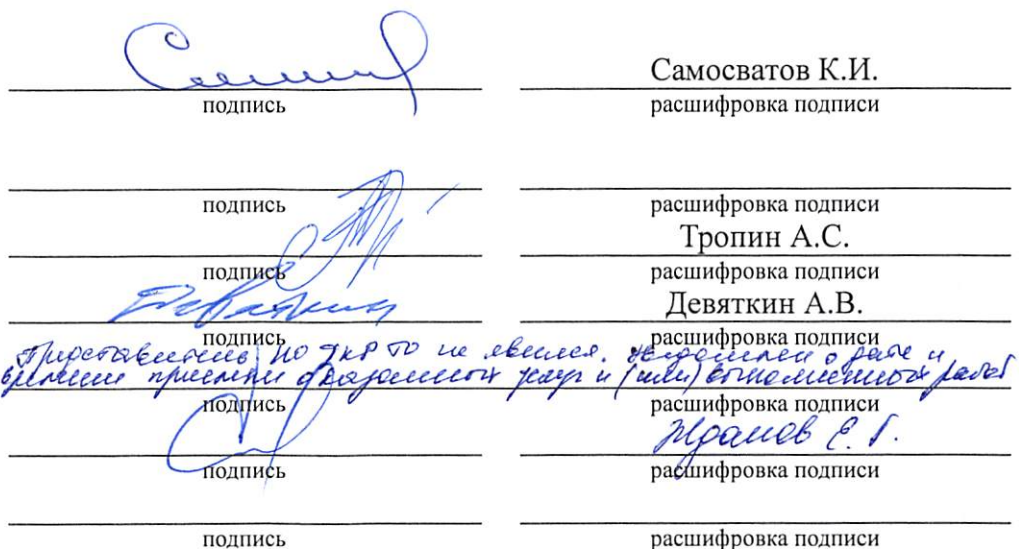 Самосватов К.И.
подпись расшифровка подписи
подпись расшифровка подписи
Тропин А.С.
подпись расшифровка подписи
Девяткин
Девяткин А.В.
подпись расшифровка подписи
Представитель НО ФКР ТО не явился. Уведомлен о дате и
времени приемки оказанных услуг и (или) выполненных работ
подпись расшифровка подписи
Жданов Е. Г.
подпись расшифровка подписи
подпись расшифровка подписи